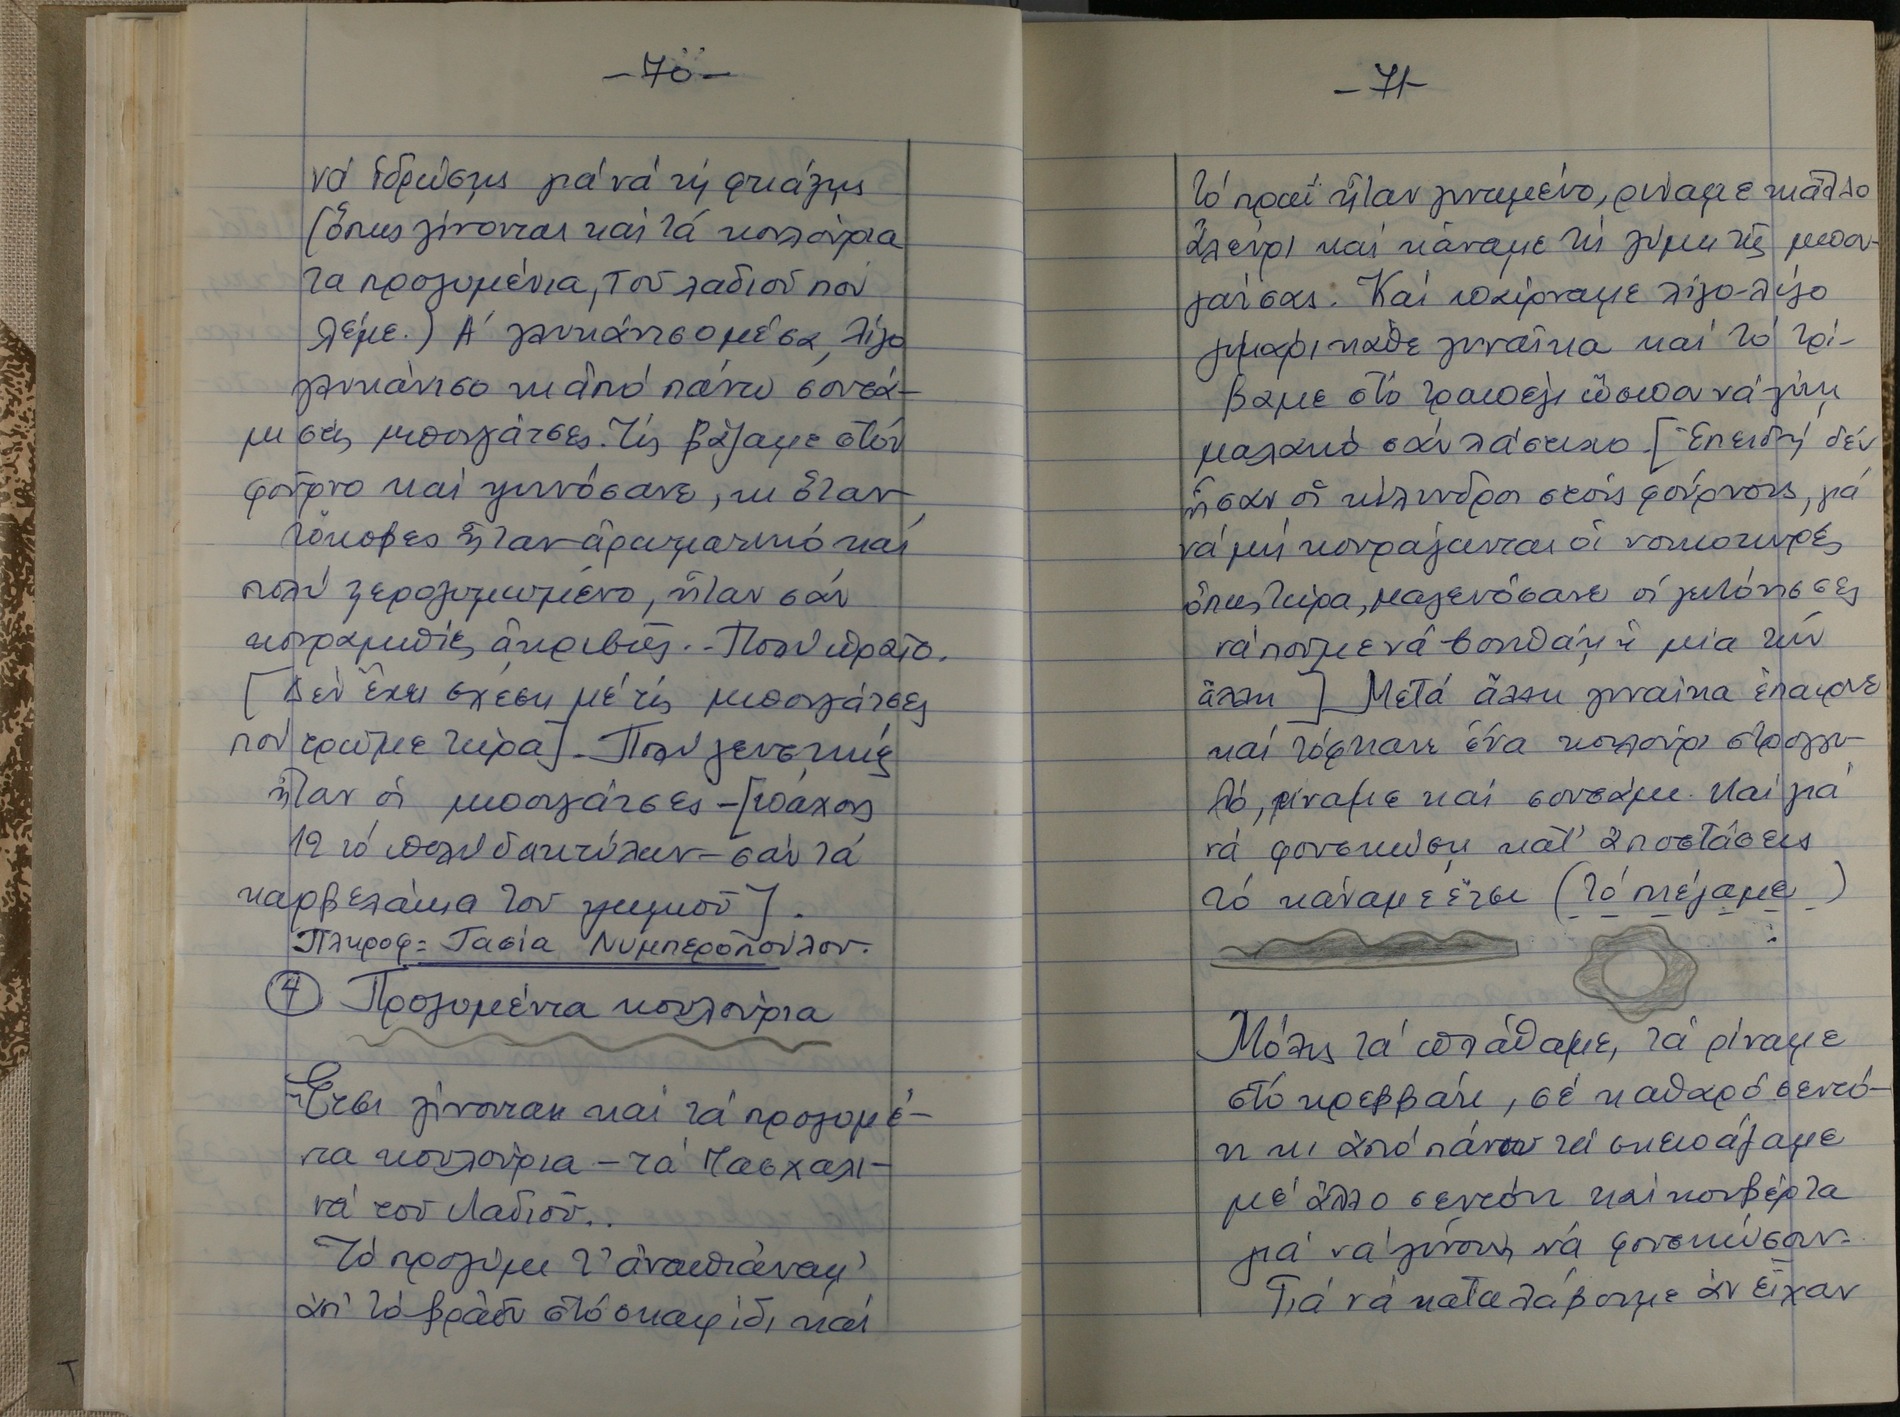 -70-
νά ἱδρώσης γιά νά τή φτιάξης
(ὅπως γίνονται καί τά κουλούρια
τα προζυμένια, τοῦ λαδιοῦ πού
λέμε.) Α΄ γλυκάνισο μέσα, λίγο
γλυκάνισο κι ἀπό πάνω σουσά-
μι σές μπουγάτσες. Τίς βάζαμε στόν
φοῦρνο καί γινόσανε, κι ὅταν
τὄκοβες ἦταν ἀρωματικό καί
πολύ ξεροζυμωμένο, ἦταν σάν
κουραμπιές ἀκριβῶς.. Πολύ ὡραῖο.
[Δέν ἔχει σχέση μέ τίς μπουγάτσες
πού τρῶμε τώρα]. Πολύ γευστικές
ἦταν οἱ μπουγάτσες - [πάχους
12 τό πολύ δακτύλων - σάν τά
καρβελάκια του ψωμιοῦ].
Πληροφ= Τασία Νυμπεροπούλου.
④ Προζυμένια κουλούρια
Ἔτσι γίνονται καί τά προζυμέ-
νια κουλούρια - τά Πασχαλι-
νά τοῦ Λαδιοῦ..
Τό προζύμι τ' ἀναπιάναμ'
ἀπ' τό βράδυ στό σκαφίδι καί
-71-
τό πρωί ἦταν γινωμένο, ρίναμε κι ἄλλο
ἀλεύρι καί κάναμε τή ζύμη τῆς μπου-
γάτσας. Καί παίρναμε λίγο-λίγο
ζυμάρι κάθε γυναῖκα καί τό τρί-
βαμε στό τραπέζι ὥσπου νά γίνη
μαλακό σάν λάστιχο. [Ἐπειδή δέν
ἦσαν οἱ κύλινδροι στούς φούρνους, γιά
νά μή κουράζωνται οἱ νοικοκυρές
ὅπως τώρα, μαζευόσανε οἱ γειτόνισσες
νά ποῦμε νά βοηθάη ἡ μία τήν
ἄλλη] Μετά ἄλλη γυναίκα ἔπαιρνε
καί τόφκανε ἕνα κουλούρι στρογγυ-
λό, ρίναμε καί σουσάμι. Καί γιά
νά φουσκώση κατ' ἀποστάσεις
τό κάναμε ἔτσι (τό πιέζαμε)
:
Μόλις τά πλάθαμε, τά ρίναμε
στό κρεββάτι, σέ καθαρό σεντό-
νι κι ἀπό πάνω τά σκεπάζαμε
μέ ἄλλο σεντόνι καί κουβέρτα
γιά νά γίνουν, νά φουσκώσουν.
Γιά νά καταλάβουμε ἄν εἶχαν